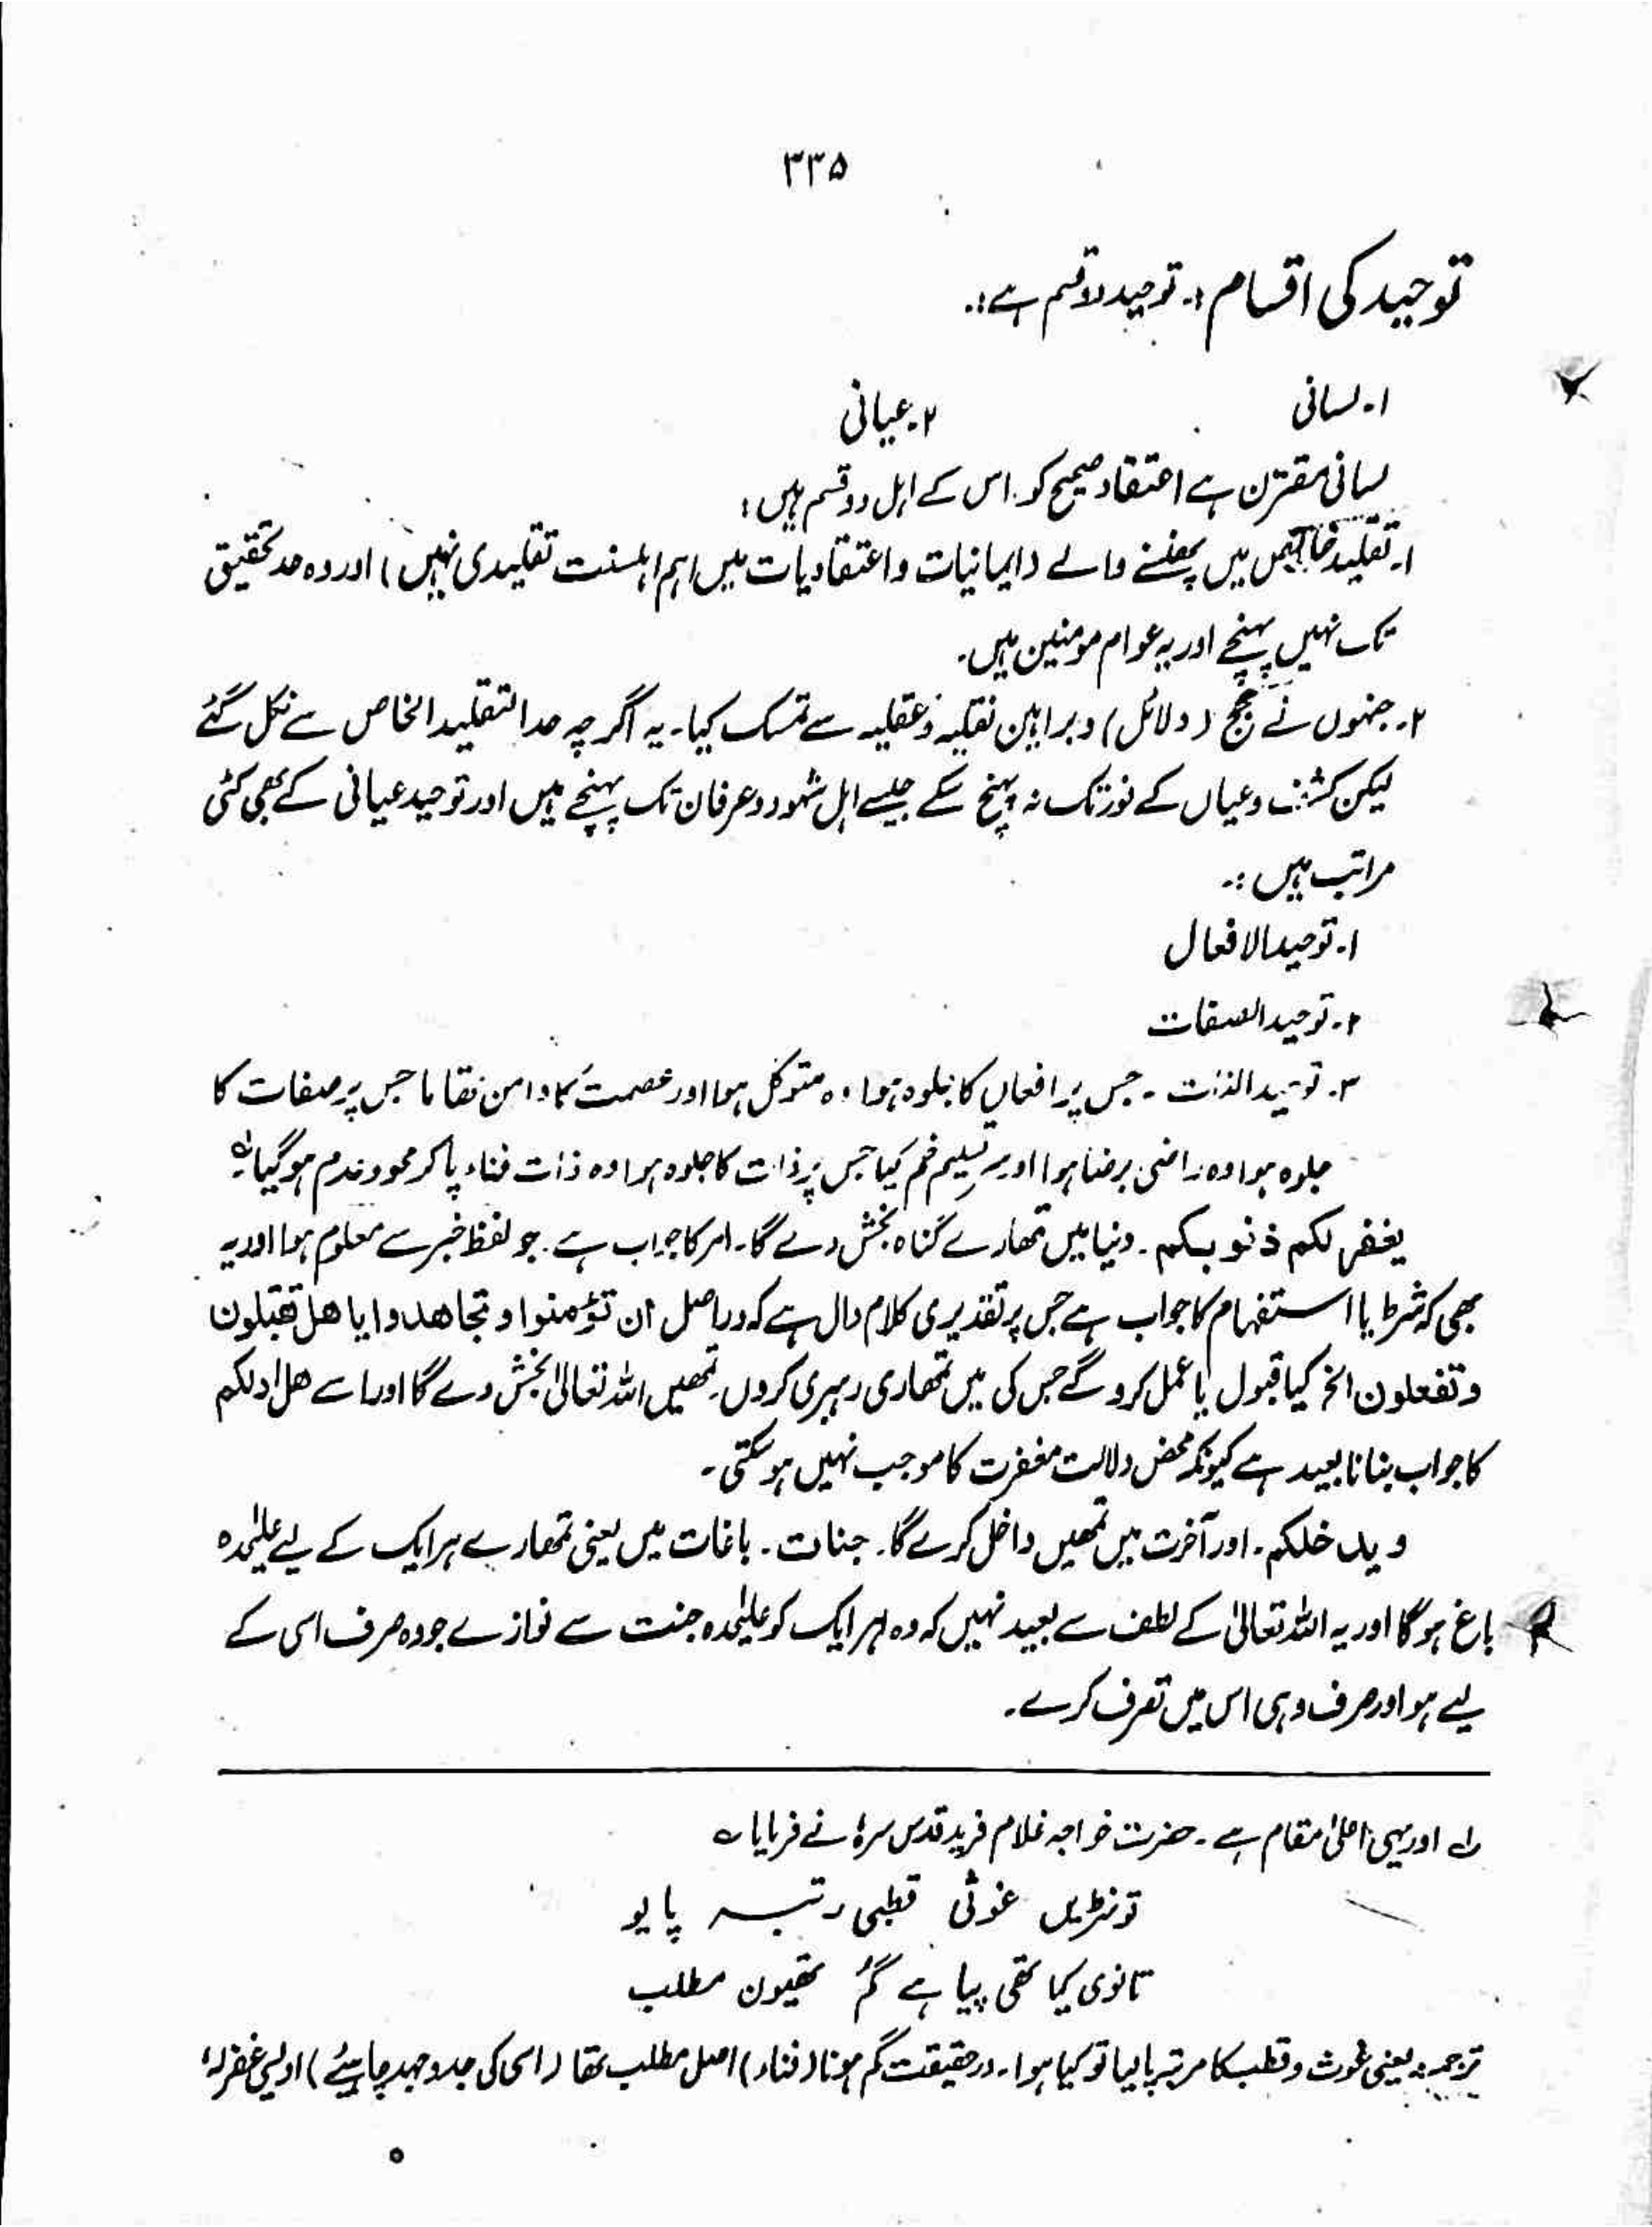 ۳۳۵
توحید کی اقسام :۔ توحید دو قسم ہے :۔
۱۔ لسانی ۲۔ عیانی
لسانی مقترن ہے اعتقاد صحیح کو۔ اس کے اہل دو قسم ہیں :
۱۔ تقلید میں پھنسنے والے (ایمانیات و اعتقادیات میں ہم اہلسنت تقلیدی نہیں) اور وہ حد تحقیق
تک نہیں پہنچے اور یہ عوام مومنین ہیں۔
۲۔ جنہوں نے حجج (دلائل) و براہین نقلیہ و عقلیہ سے تمسک کیا۔ یہ اگرچہ حد التقلید الخاص سے نکل گئے
لیکن کشف و عیاں کے نور تک نہ پہنچ سکے جیسے اہل شہود و عرفان تک پہنچے ہیں اور توحید عیانی کے بھی کئی
مراتب ہیں :۔
۱۔ توحید الافعال
۲۔ توحید الصفات
۳۔ توحید الذات ۔ جس پر افعال کا جلوہ ہوا وہ متوکل ہوا اور عصمت کا دامن تھاما جس پر صفات کا
جلوہ ہوا وہ راضی برضا ہوا اور سر تسلیم خم کیا جس پر ذات کا جلوہ ہوا وہ ذات فناء پا کر محو و عدم ہو گیا لہ
یغفر لکم ذنوبکم ۔ دنیا میں تمھارے گناہ بخش دے گا۔ امر کا جواب ہے۔ جو لفظ خبر سے معلوم ہوا اور یہ
بھی کہ شرط یا استفہام کا جواب ہے جس پر تقدیری کلام دال ہے کہ دراصل ان تؤمنوا و تجاھدوا یا ھل تقبلون
و تفعلون الخ کیا قبول یا عمل کرو گے جس کی میں تمھاری رہبری کروں۔ تمھیں اللہ تعالیٰ بخش دے گا اور اسے ھل ادلکم
کا جواب بنانا بعید ہے کیونکہ محض دلالت مغفرت کا موجب نہیں ہو سکتی۔
و یدخلکم ۔ اور آخرت میں تمھیں داخل کرے گا۔ جنات ۔ باغات میں یعنی تمھارے ہر ایک کے لیے علیٰحدہ
باغ ہو گا اور یہ اللہ تعالیٰ کے لطف سے بعید نہیں کہ وہ ہر ایک کو علیٰحدہ جنت سے نوازے جو وہ صرف اسی کے
لیے ہو اور صرف وہی اس میں تصرف کرے۔
لہ اور یہی اعلیٰ مقام ہے ۔ حضرت خواجہ غلام فرید قدس سرہٗ نے فرمایا ؎
تونڑیں غوثی قطبی رتبہ پایو
تانوی کیا تھی پیا ہے گم تھیون مطلب
ترجمہ: یعنی غوث و قطب کا مرتبہ پا لیا تو کیا ہوا۔ درحقیقت گم ہونا (فناء) اصل مطلب تھا (اسی کی جدوجہد چاہیئے) اویسی غفرلہٗ